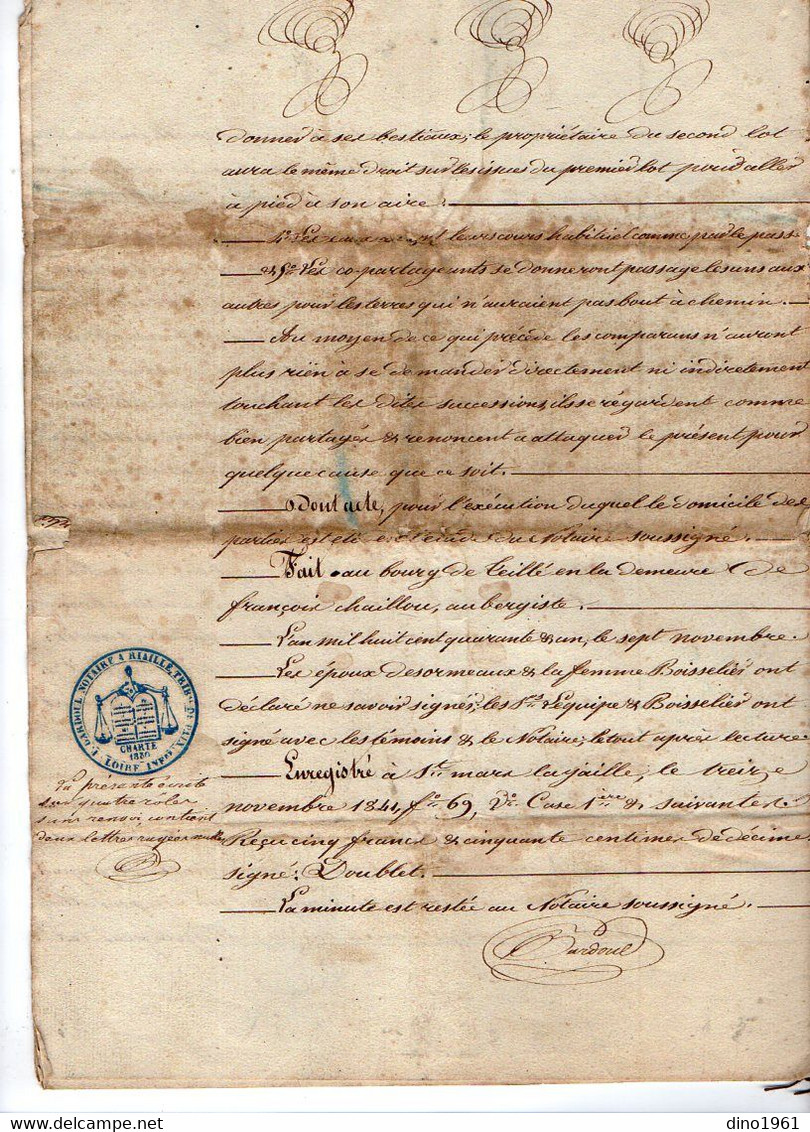 donner à ses bestiaux; le propriétaire du second lot
aura le même droit sur les issues du premier lot pour aller
à pied à son aire.
4º Les eaux leurs cours habituel comme par le passé
& 5º Les co-partageants se donneront passage les uns aux
autres pour les terres qui n'auraient pas bout à chemin.
Au moyen de ce qui précède les comparans n'auront
plus rien à se demander directement ni indirectement
touchant les dites successions, ils se régardent comme
bien partagés & renoncent a attaquer le présent pour
quelque cause que ce soit.
Dont acte, pour l'exécution duquel le domicile des
parties est élu en l'étude du Notaire soussigné.
Fait au bourg de Teillé en la demeure de
françois chaillou, aubergiste.
L'an mil huit cent quarante & un, le sept novembre.
Les époux desormeaux & la femme Boisselier ont
déclaré ne savoir signer, les Srs Lequipe & Boisselier ont
signé avec les témoins & le Notaire; le tout après lecture
Enregistré à St. mars la jaille, le treize
novembre 1841, fº 69, Vº Case 1ière & suivantes
Reçu cinq francs & cinquante centimes de décime
signé: Doublet.
La minute est restée au Notaire soussigné.
Bardoul
J. BARDOUL NOTAIRE A RIAILLÉ, TRIB.
LOIRE INF.re
CHARTE
1830
La présente écrite
sur quatre roles
sans renvoi contient
deux lettres rayées nulles
dino1961